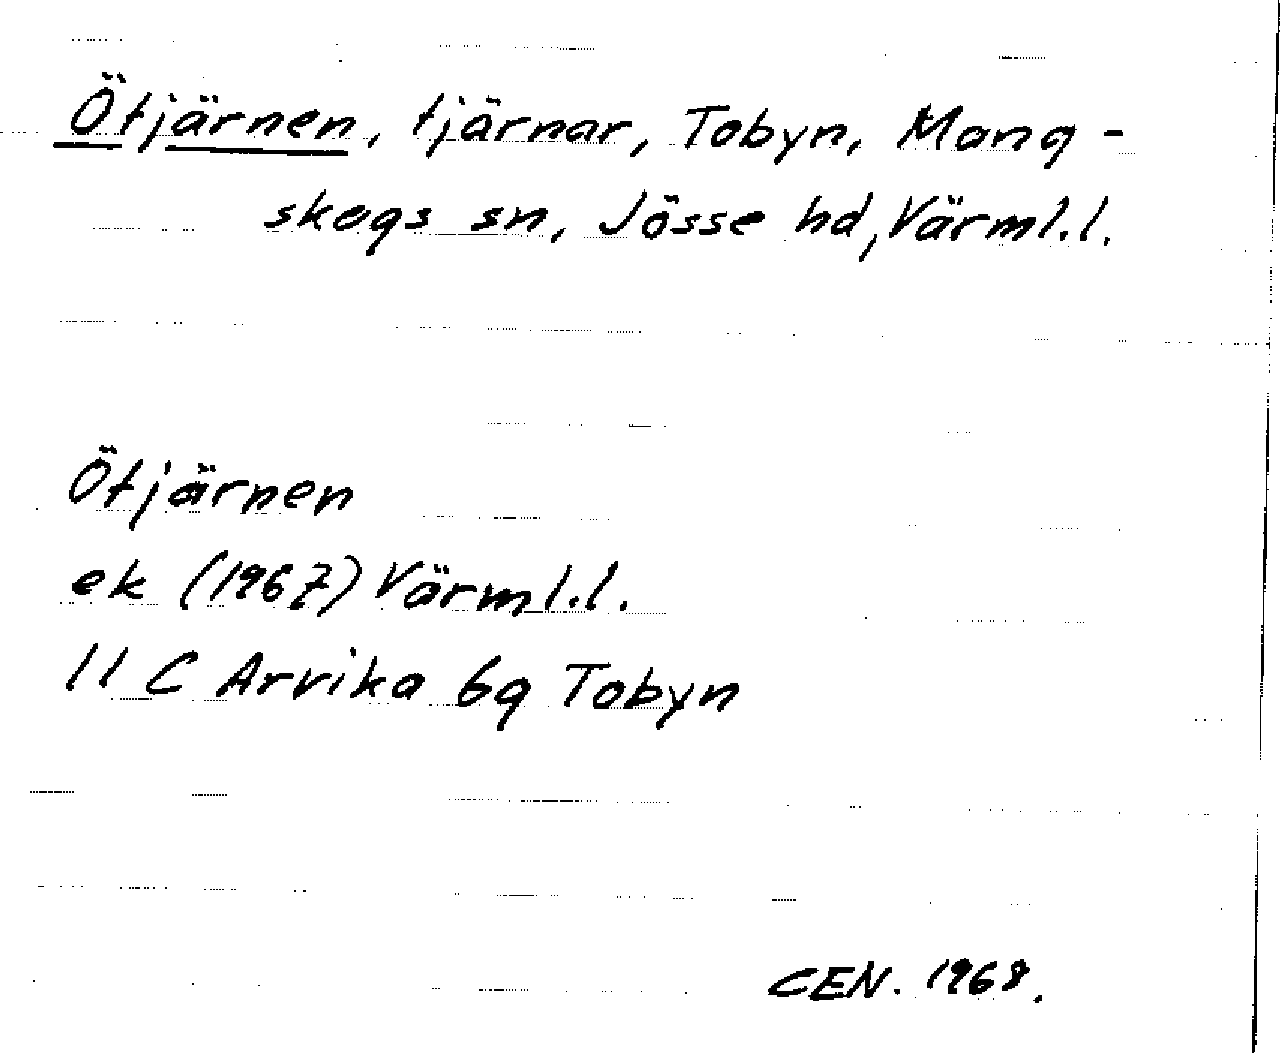 Ötjärnen, tjärnar, Tobyn, Mang-
skogs sn, Jösse hd, Värml.l.
Ötjärnen
ek (1967) Värml.l.
11 C Arvika 6g Tobyn
CEN. 1968.